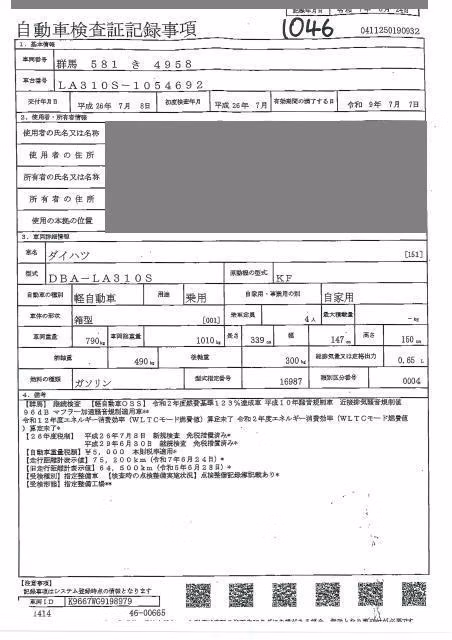 1046
自動車検査証記録事項
0411250190932
1．基本情報
車両番号 群馬 581 き 4958
車台番号 LA310S-1054692
交付年月日 平成26年 7月 8日 初度検査年月 平成26年 7月 有効期間の満了する日 令和 9年 7月 7日
2．使用者・所有者情報
使用者の氏名又は名称
使用者の住所
所有者の氏名又は名称
所有者の住所
使用の本拠の位置
3．車両詳細情報
車名 ダイハツ [151]
型式 DBA-LA310S 原動機の型式 KF
自動車の種別 軽自動車 用途 乗用 自家用・事業用の別 自家用
車体の形状 箱型 [001] 乗車定員 4人 最大積載量 -kg
車両重量 790kg 車両総重量 1010kg 長さ 339cm 幅 147cm 高さ 150cm
前軸重 490kg 後軸重 300kg 総排気量又は定格出力 0.65 L
燃料の種類 ガソリン 型式指定番号 16987 類別区分番号 0004
4．備考
【群馬】 継続検査 【軽自動車OSS】 令和2年度燃費基準123%達成車 平成10年騒音規制車 近接排気騒音規制値
96dB マフラー加速騒音規制適用車**
令和12年度エネルギー消費効率(WLTCモード燃費値) 算定未了 令和2年度エネルギー消費効率(WLTCモード燃費値
) 算定未了*
【26年度税制】 平成26年7月8日 新規検査 免税措置済み*
平成29年6月30日 継続検査 免税措置済み*
【自動車重量税額】 ¥5,000 本則税率適用*
【走行距離計表示値】 75,200km (令和7年6月24日)*
【旧走行距離計表示値】 64,500km (令和5年6月23日)*
【受検種別】 指定整備車 【検査時の点検整備実施状況】 点検整備記録簿記載あり*
【受検形態】 指定整備工場**
【注意事項】
記録事項はシステム登録時点の情報となります
車両ID K9667WG9198979
1414 46-00665